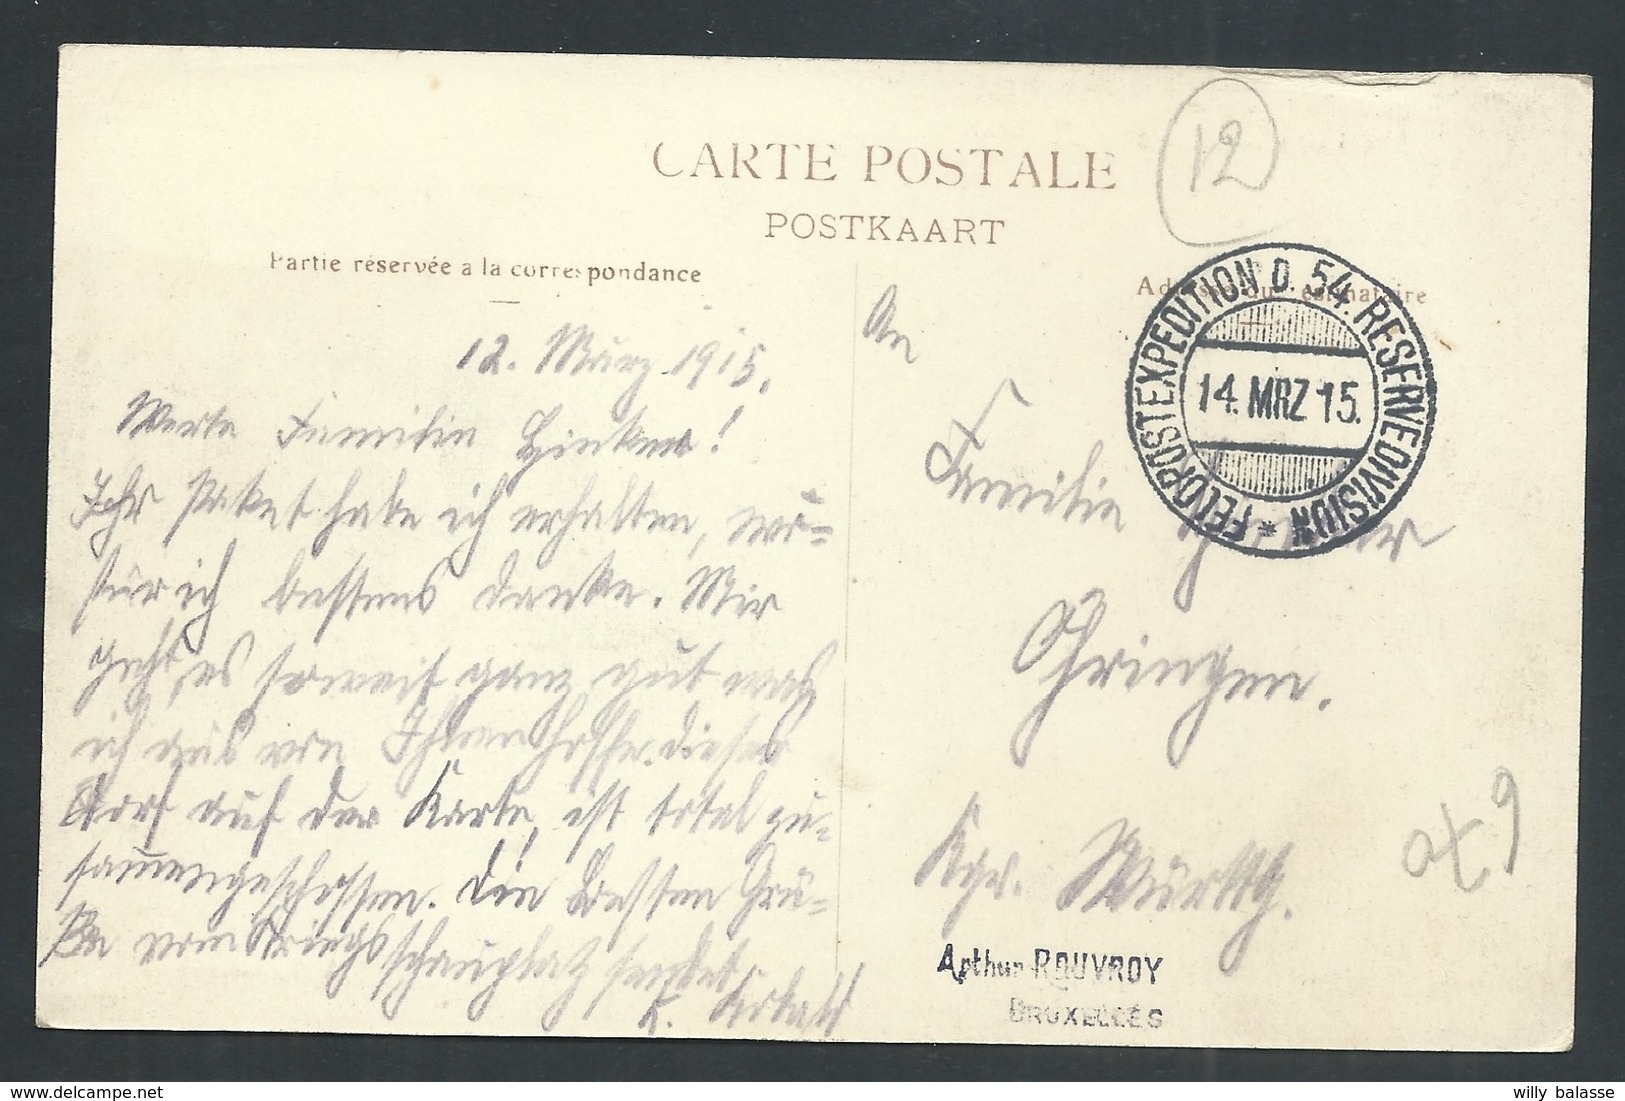 CARTE POSTALE
POSTKAART
12
Partie réservée a la correspondance
FELDPOSTEXPEDITION D. 54. RESERVEDIVISION *
14. MRZ 15.
12. März 1915.
Werte Familie
Ihr Paket habe ich erhalten, wo-
für ich bestens danke. Mir
geht es soweit ganz gut was
ich auch von Ihnen hoffe. dieses
Dorf auf der Karte, ist total zu-
sammengeschossen. Die besten Grü-
ße vom Kriegsschauplatz sendet
K.
An
Familie
Öhringen.
Kgr. Württbg.
Arthur ROUVROY
BRUXELLES
willy balasse